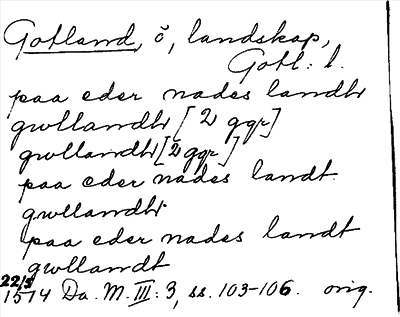 Gotland, ö, landskap,
Gotl: l.
paa eder nades landh
gwllandh [2 ggr]
gwllandh [2 ggr]
paa eder nades landt
gwllandh
paa eder nades landt
gwllandt
22/5
1514 Da. M. III: 3, ss. 103-106. orig.